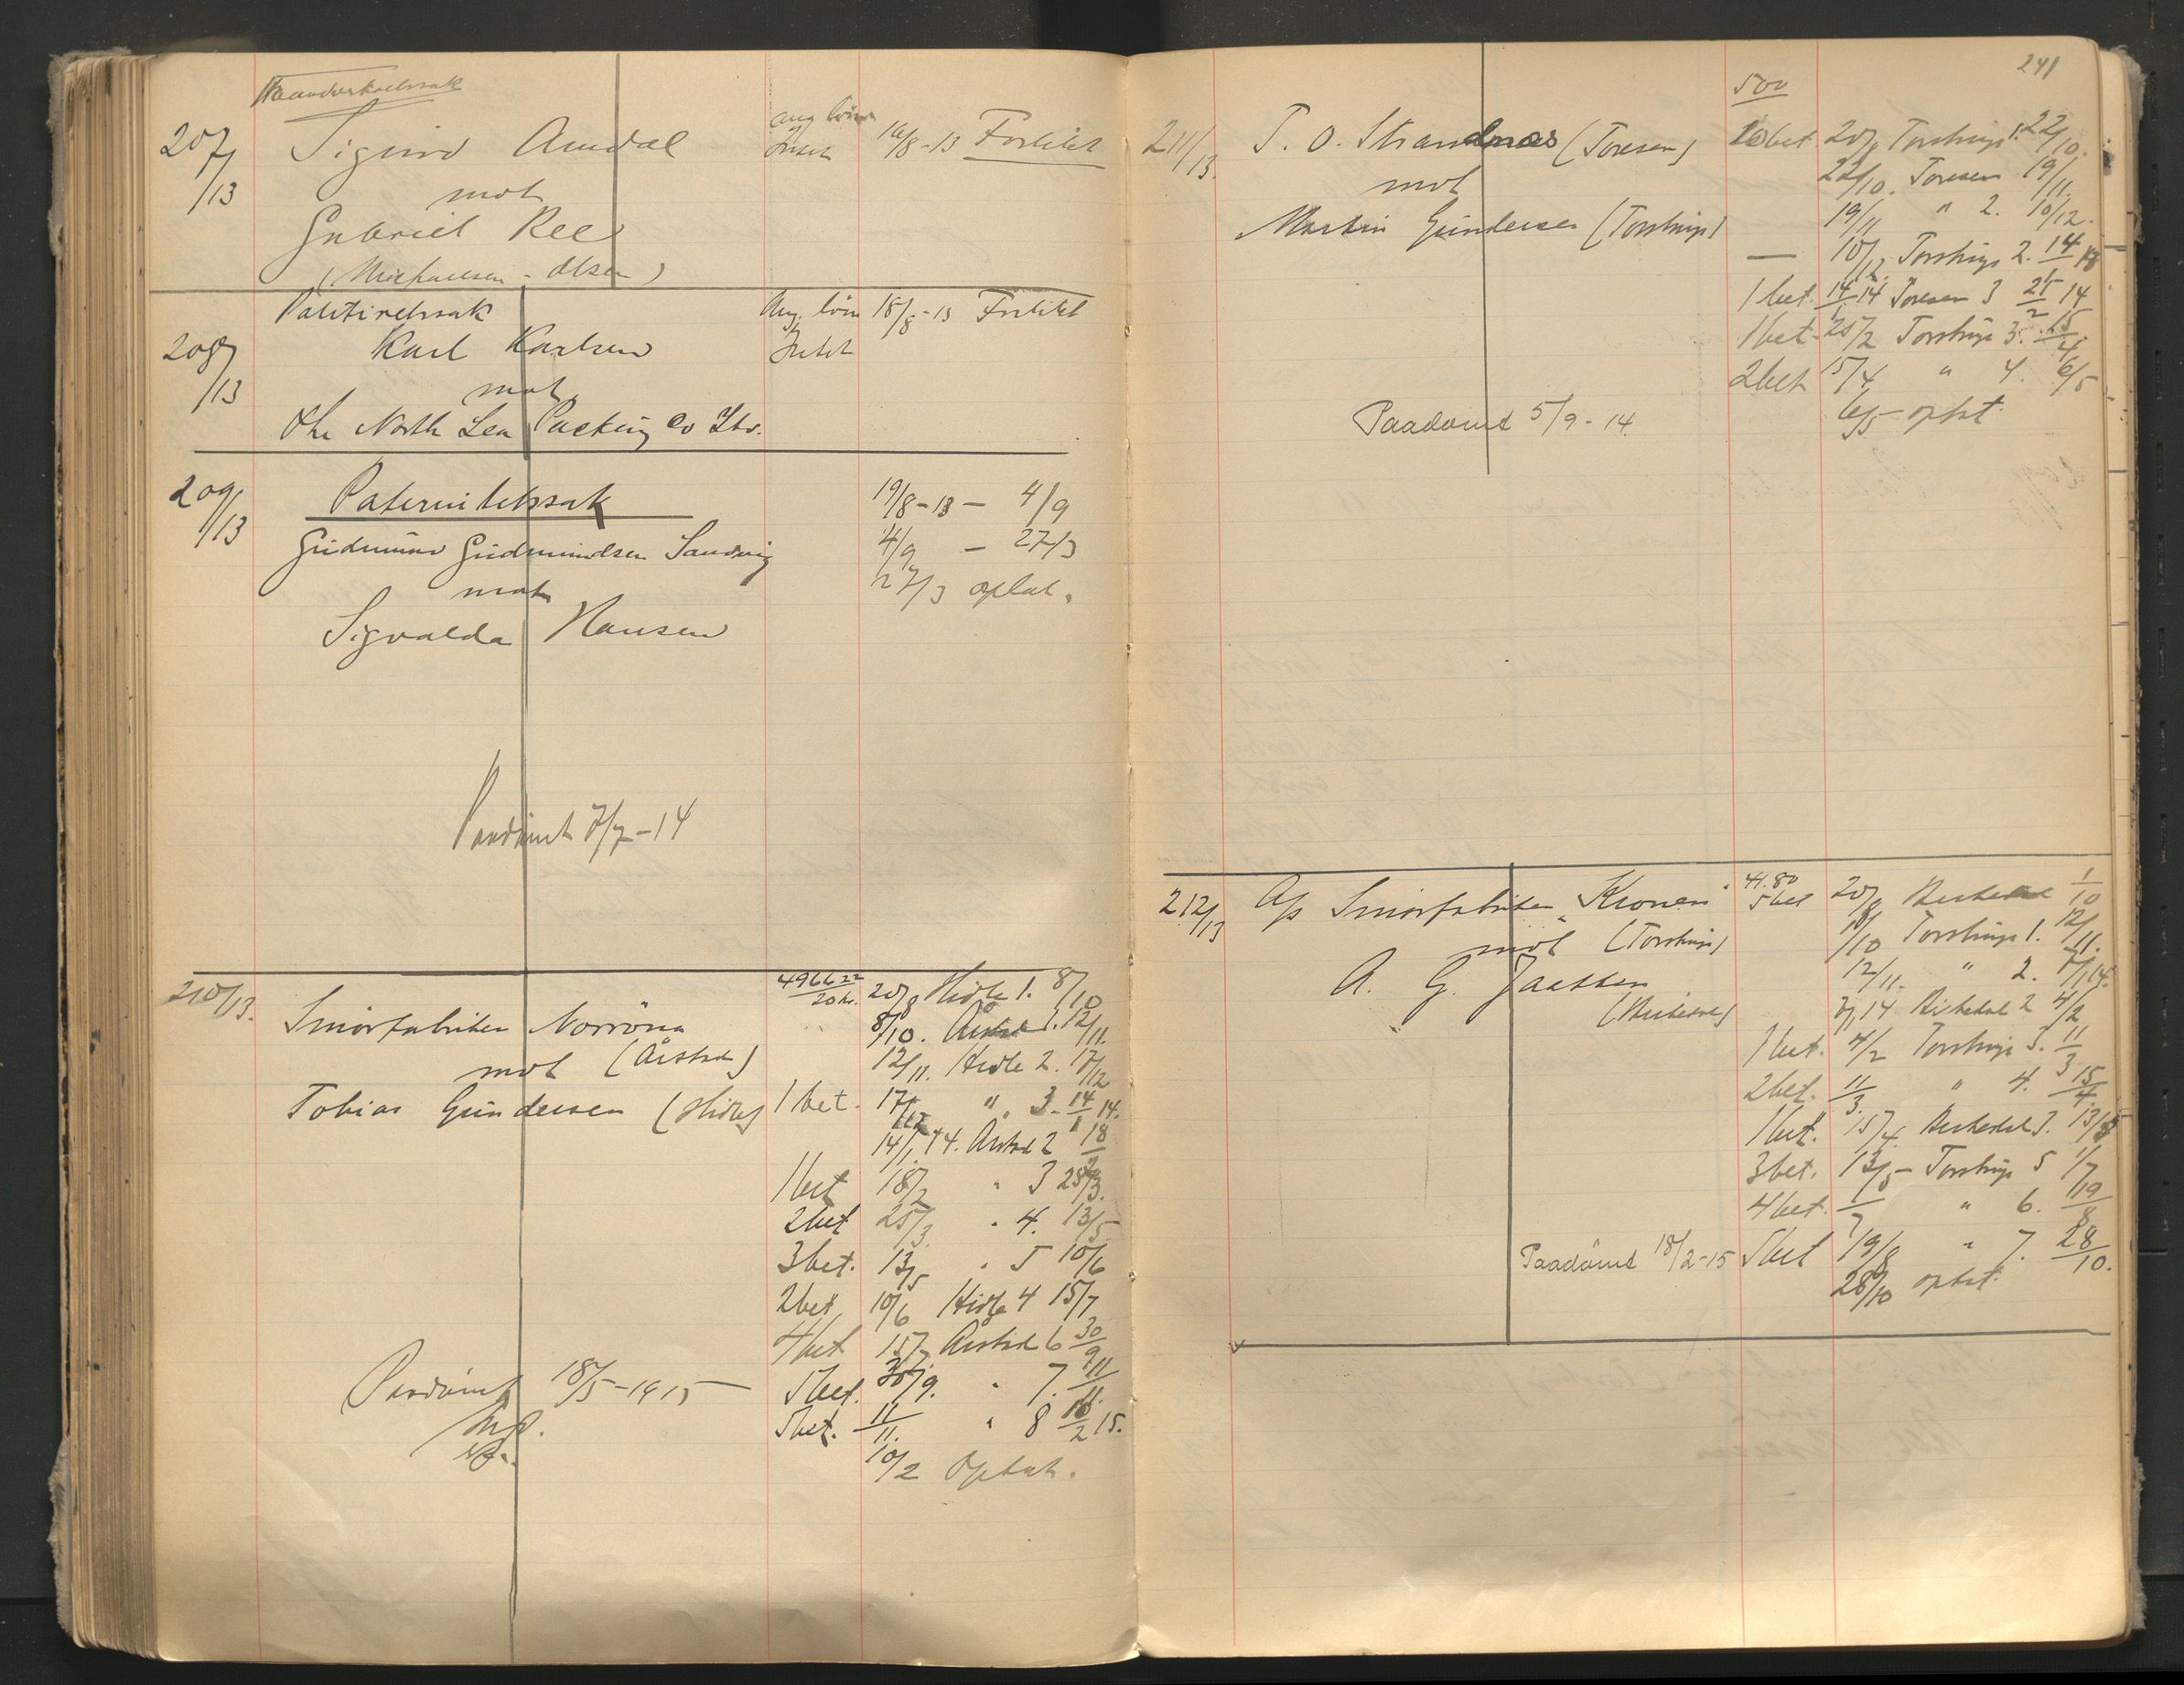 207/13
Sigurd Amdal
mot
Gabriel Ree
ang. løn
16/8-13 Forlikt
208/13
Politiretssak
Karl Karlsen
mot
The North Sea Packing Co Ltd.
Ang. løn 18/8-13 Forlikt
209/13
Paternitetssak
Gudmund Gudmundsen Sandvig
mot
Sigvalda Hansen
19/8-13 - 4/9
4/9 - 27/3
27/3 optat.
Paadömt 7/7-14
210/13.
Smörfabriken Norröna
mot (Årstad)
Tobias Gundersen (Hidle)
4966 22
20 kr.
20/8 Hidle 1. 8/10
8/10. Årstad 1. 12/11.
12/11. Hidle 2. 17/12
1 bet. 17/12 " 3. 14/1 14.
14/1 14. Årstad 2 18/2
1 bet 18/2 " 3 25/3.
2 bet 25/3. " 4. 13/5
3 bet. 13/5 " 5 10/6
2 bet 10/6 Hidle 4 15/7
4 bet 15/7 Årstad 6 30/9
5 bet. 30/9. " 7. 11/11.
5 bet. 11/11. " 8 10/2 15.
10/2 Optat.
Paadömt 18/5-1915
241
211/13.
T. O. Strandnæs (Toresen)
mot
Martin Gundersen (Torstrup)
500
10 bet 20/8 Torstrup 1. 22/10.
22/10. Toresen 19/11.
19/11 " 2. 10/12.
— 10/12. Torstrup 2. 14/1
1 bet. 14/1 14 Toresen 3 25/2 14
1 bet. 25/2 Torstrup 3. 15/4
2 bet 15/4 " 4. 6/5
6/5 optat
Paadömt 5/9-14.
212/13
A/s Smörfabriken "Kronen"
mot (Torstrup)
A. G. Jaatten
(Birkedal)
41.80
5 bet 20/8 Birkedal 1/10
1/10 Torstrup 1. 12/11.
12/11. " 2. 7/1 14.
7/1 14 Birkedal 2 4/2
1 bet. 4/2 Torstrup 3. 11/3
2 bet. 11/3. " 4. 15/4.
1 bet. 15/4. Birkedal 3. 13/5
3 bet. 13/5 - Torstrup 5 1/7
4 bet. 1/7 " 6. 19/8
5 bet 19/8 " 7. 28/10.
28/10 optat.
Paadömt 18/2-15